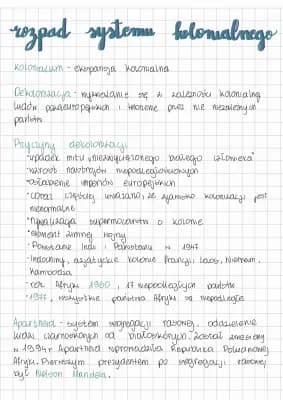 rozpad systemu kolonialnego
kolonializm - ekspansja kolonialna
Dekolonizacja - wyzwalanie się z zależności kolonialnej
ludów pozaeuropejskich i tworzenie przez nie niezależnych
państw
Przyczyny dekolonizacji
• upadek mitu „niezwyciężonego białego człowieka"
• wzrost nastrojów niepodległościowych
• osłabienie imperiów europejskich
• coraz częściej uważano, że zjawisko kolonizacji jest
nienormalne
• rywalizacja supermocarstw o kolonie
• element zimnej wojny
• Powstanie Indii i Pakistanu w 1947
• Indochiny, azjatyckie kolonie Francji, Laos, Wietnam,
Kambodża
• rok Afryki 1960, 17 niepodległych państw
• 1977, wszystkie państwa Afryki są niepodległe
Apartheid - system segregacji rasowej, oddzielenie
ludzi czarnoskórych od białoskórych. Został zniesiony
w 1994r Apartheid wprowadziła Republika Południowej
Afryki. Pierwszym prezydentem po segregacji rasowej
był Nelson Mandela.